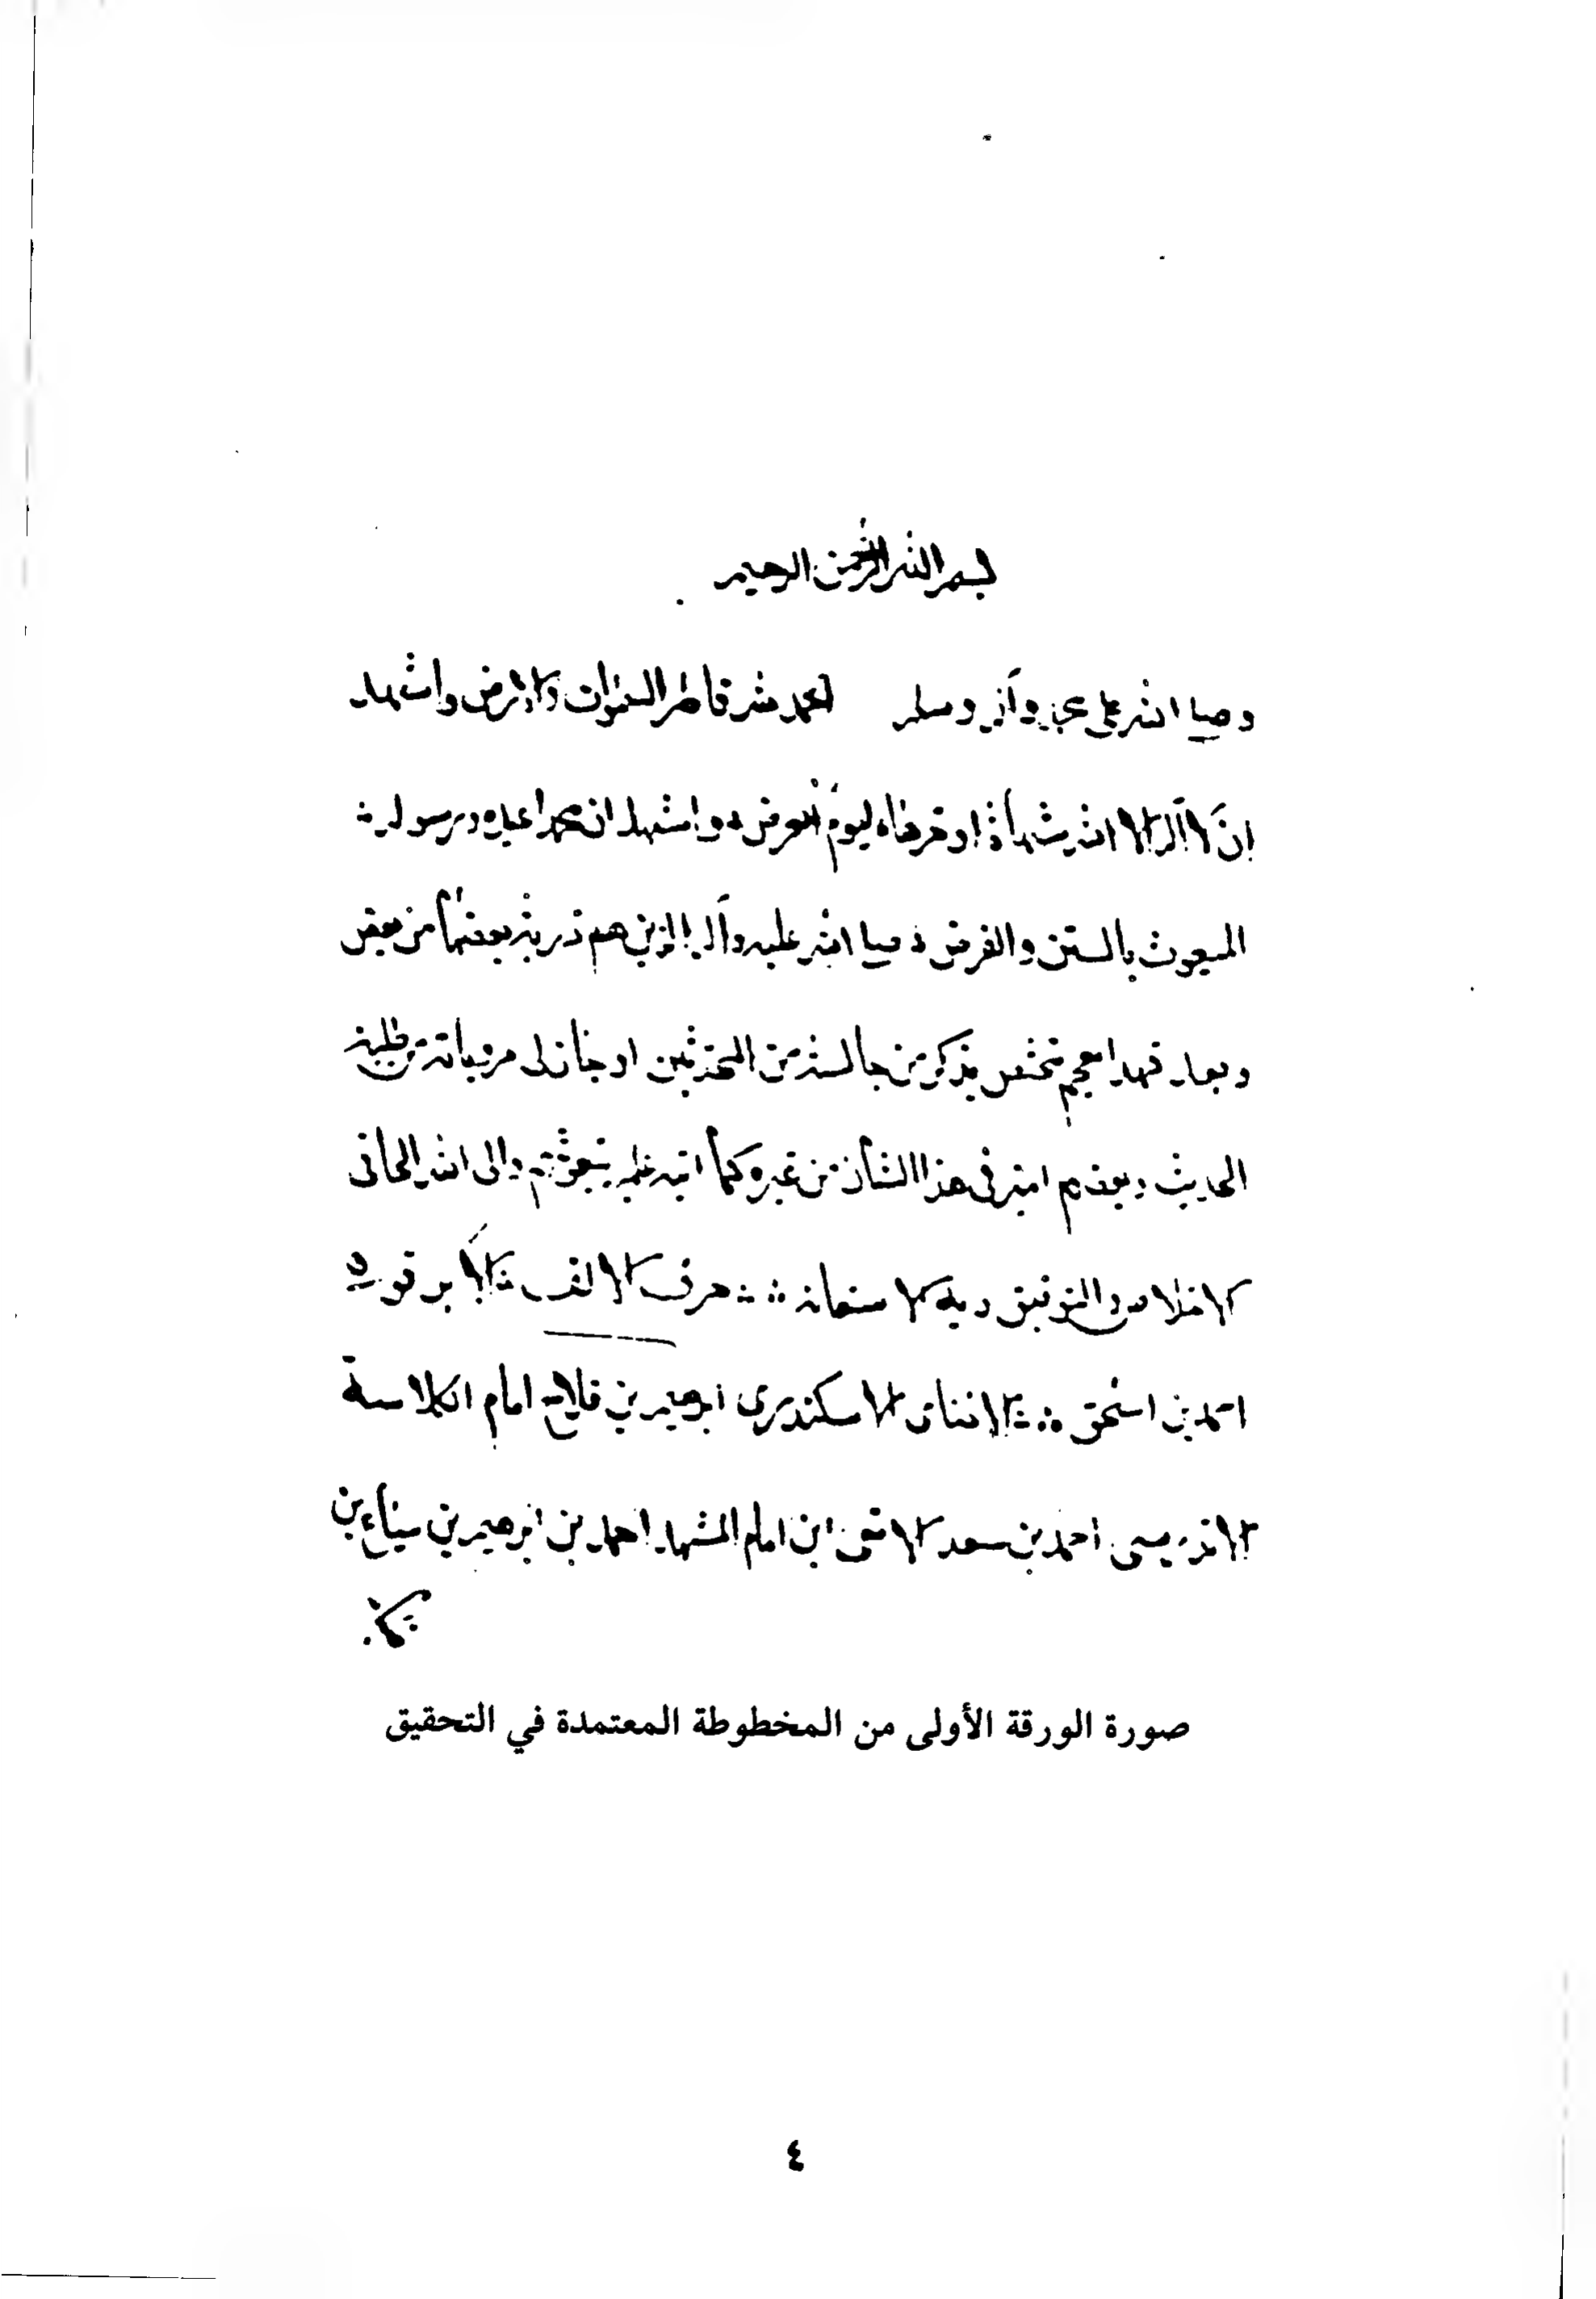 بسم الله الرحمن الرحيم
وصلى الله على محمد وآله وسلم الحمد لله فاطر السموات والارض واشهد
ان لا اله الا الله شهادة ادخرها ليوم العرض واشهد ان محمدا عبده ورسوله
المبعوث بالسنن والفرض صلى الله عليه وآله الذين هم ذرية بعضها من بعض
وبعد فهذا معجم مختص بذكر من جالسته من المحدثين او اجاز لى مروياته من طلبة
الحديث وبعضهم اميز فى هذا الشأن من غيره كما انبه عليه بنعوتهم والى الله الجا فى
الاخلاص والتوفيق وبه الاستعانة حرف الالف الابرقوهى
احمد بن اسحق الاسكندرى ابرهيم بن فلاح امام الكلاسة
الادريسى احمد بن سعد ابن امام المشهد احمد بن ابرهيم بن سباع بن
صورة الورقة الأولى من المخطوطة المعتمدة في التحقيق
٤